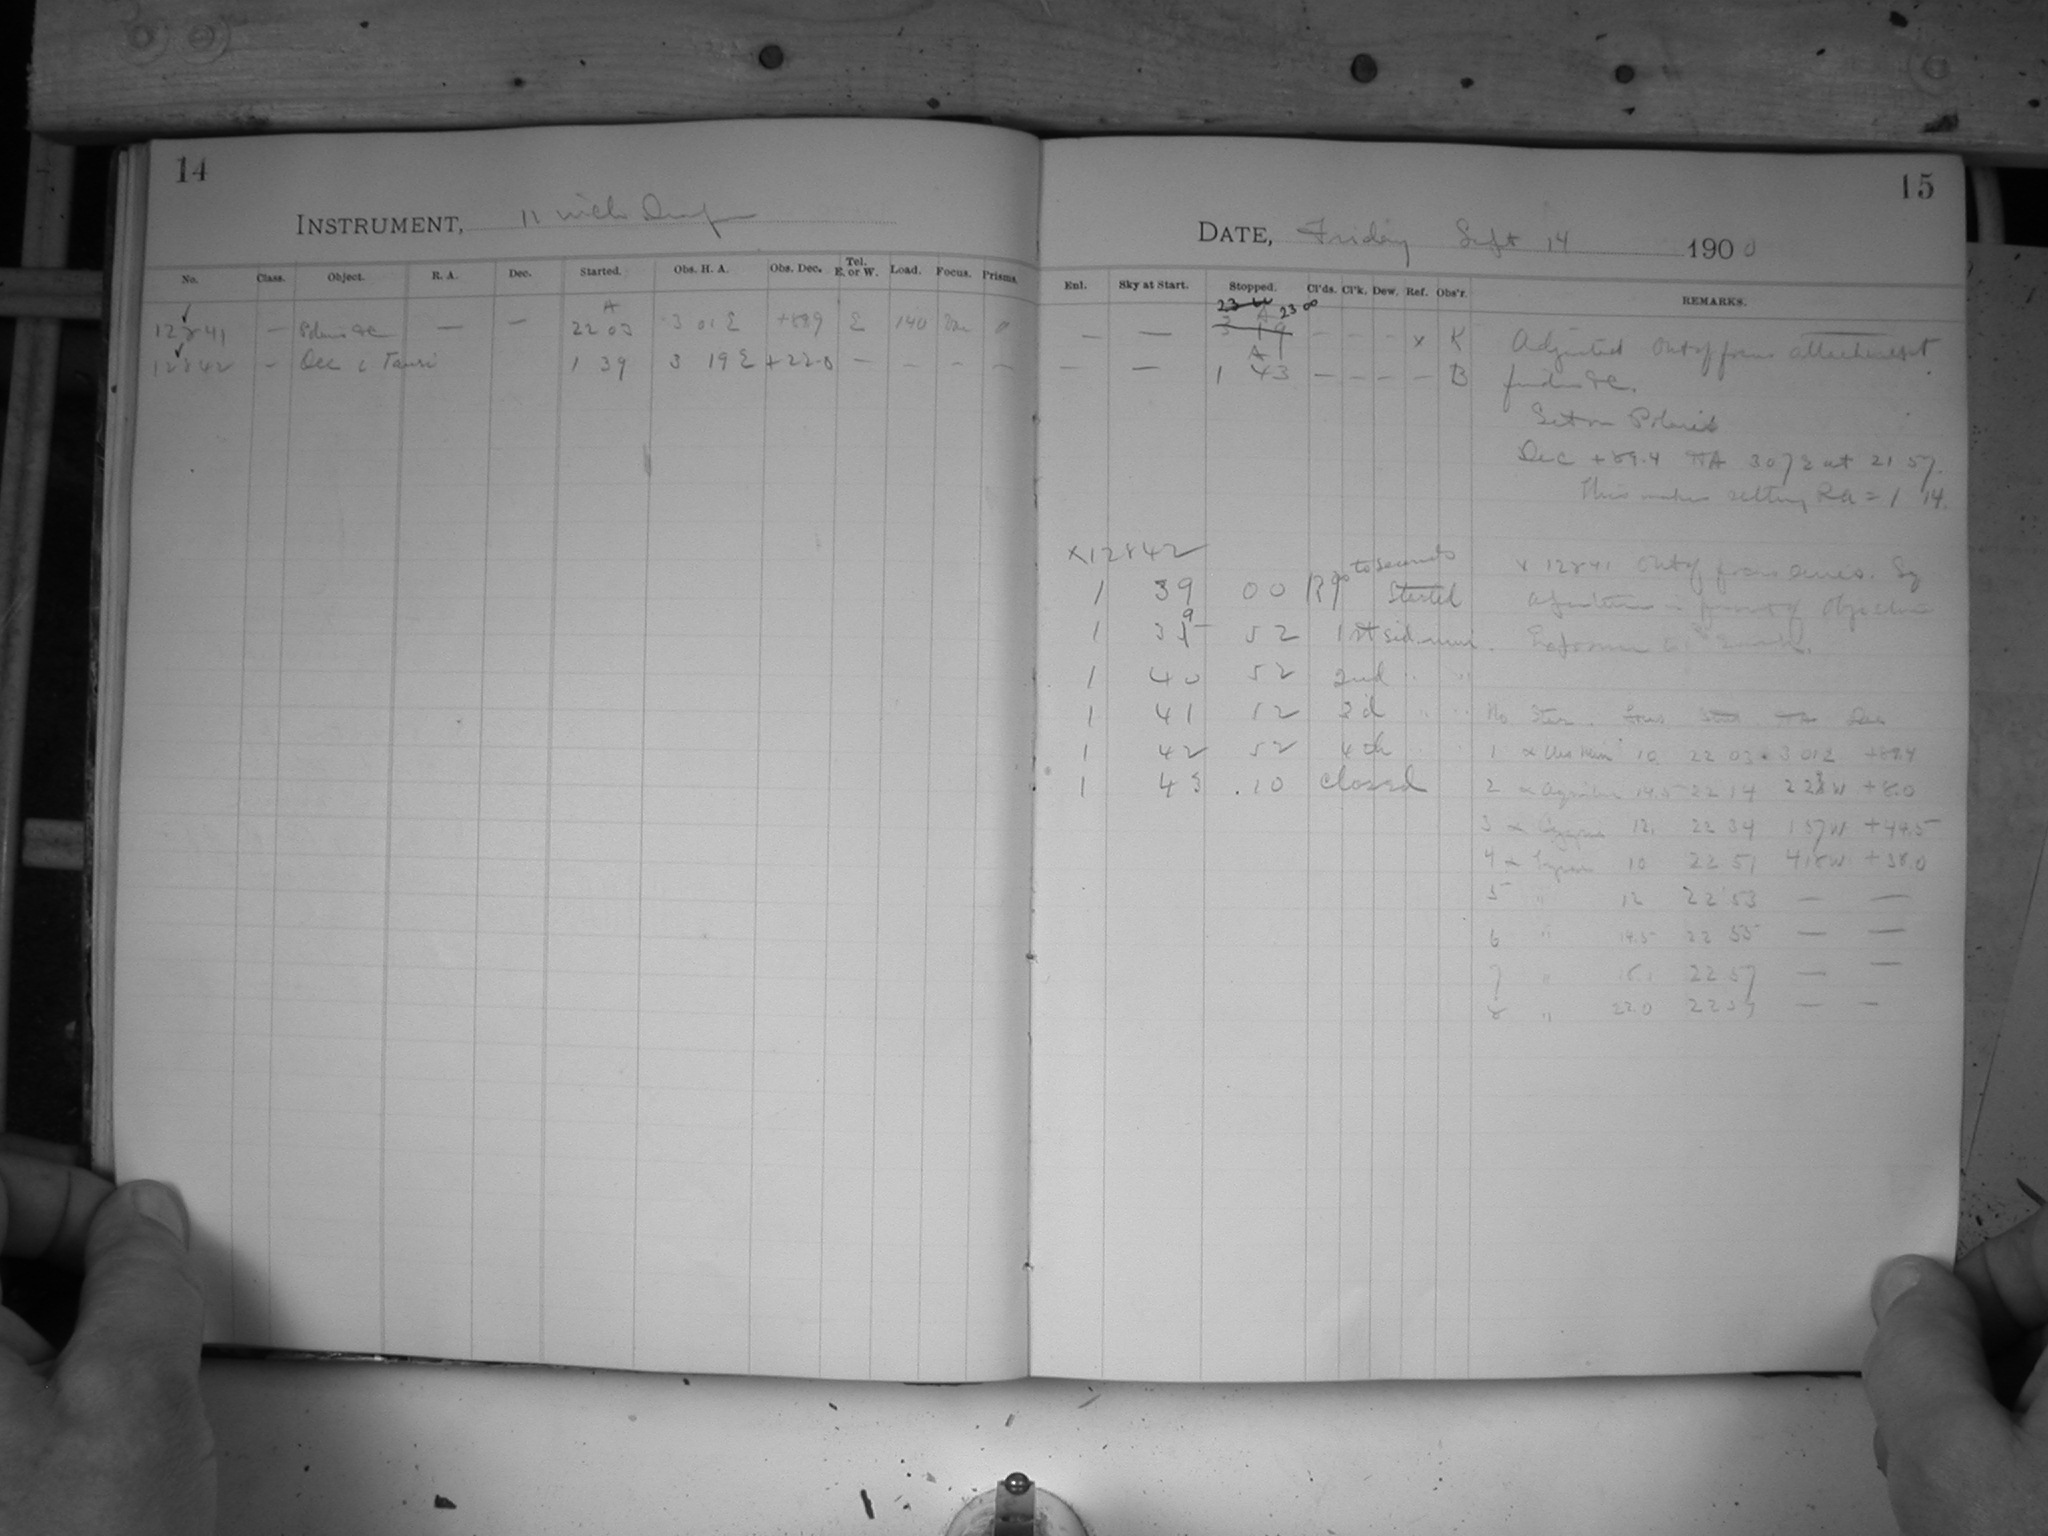 14
INSTRUMENT, 11 inch Draper
No. Class. Object. R. A. Dec. Started. Obs. H. A. Obs. Dec. Tel. E. or W. Load. Focus. Prisms.
12841 — Polaris &c — — A 22 03 3 01 E +889 E 140 0
12842 — Occ Tauri 1 39 3 19 E +22.0 — — — —
15
DATE, Friday Sept 14 1900
Enl. Sky at Start. Stopped. Cl'ds. Cl'k. Dew. Ref. Obs'r. REMARKS.
23 00
— — 3 19 — — — x K Adjusted out of focus attachment
— — A 1 43 — — — — B finder &c.
Set on Polaris
Dec +89.4 HA 3 07 E at 21 57.
This makes setting RA = 1 14.
x 12842
to seconds
1 39 00 Started
1 39 52 1st sid. min.
1 40 52 2nd " "
1 41 52 3d " "
1 42 52 4th " "
1 43 .10 closed
x 12841 Out of focus
in front of Objective
No Star. Focus Dec
1 10 22 03 3 01 E +89.4
2 14.5 22 14 +8.0
3 α Cygni 12. 22 34 1 37 W +44.5
4 α Lyrae 10 22 51 4 18 W +38.0
5 " 12 22 53 — —
6 " 14.5 22 55 — —
7 " 22 57 — —
8 " 22.0 22 59 — —